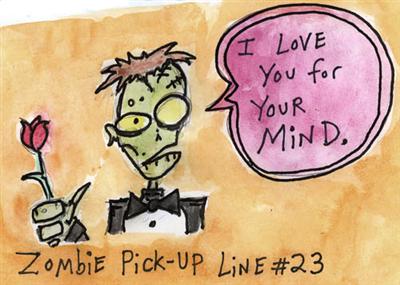 I LOVE
You for
YOUR
MiND.
Zombie Pick-UP LiNE #23